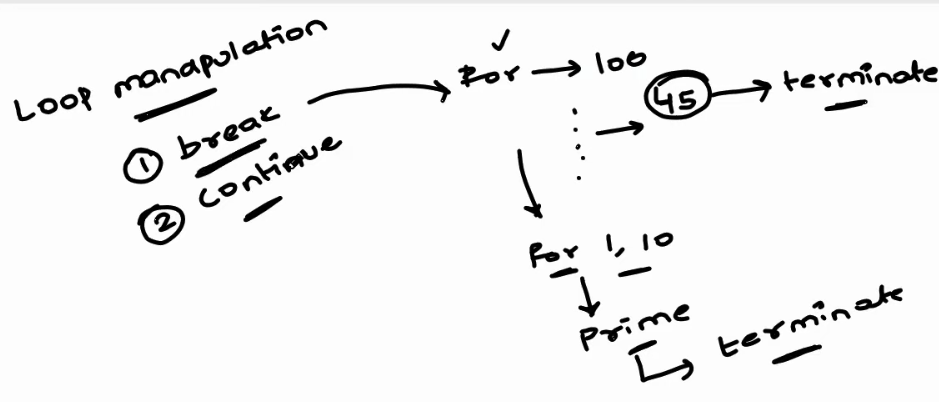 Loop manapulation
① break
② continue
for → 100
45 → terminate
for 1, 10
Prime
terminate